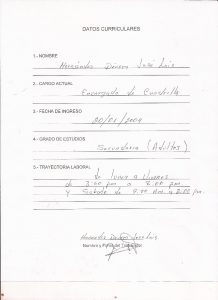 DATOS CURRICULARES
1.- NOMBRE
Hernández José Luis
2.- CARGO ACTUAL
Encargado de Cuadrilla
3.- FECHA DE INGRESO
4.- GRADO DE ESTUDIOS
Secundaria (Adultos)
5.- TRAYECTORIA LABORAL
de lunes a viernes
de 3:00 pm a 8:00 pm
y Sabado de 9:00 am a 2:00 pm
Hernández José Luis
Nombre y Firma del Trabajador